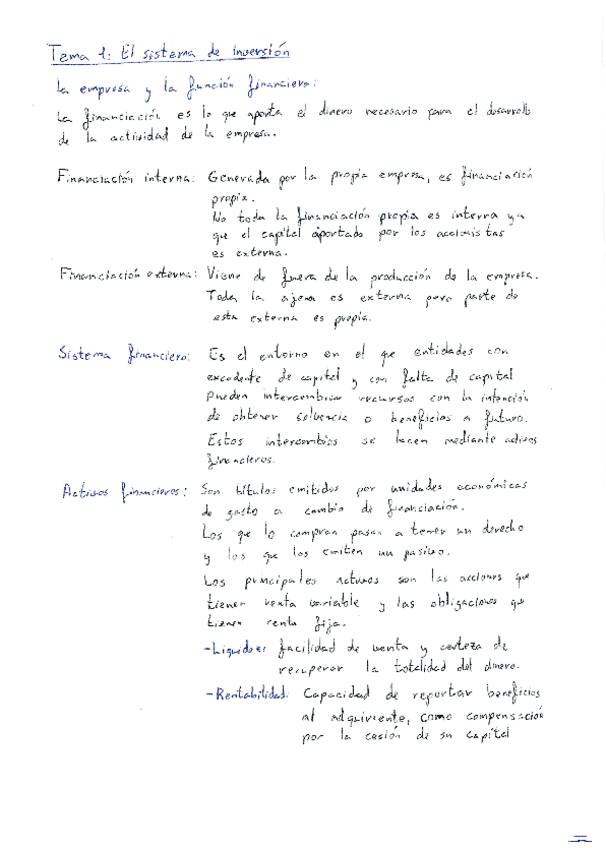 Tema 1: El sistema de inversión
La empresa y la función financiera:
La financiación es lo que aporta el dinero necesario para el desarrollo
de la actividad de la empresa.
Financiación interna: Generada por la propia empresa, es financiación
propia.
No toda la financiación propia es interna ya
que el capital aportado por los accionistas
es externa.
Financiación externa: Viene de fuera de la producción de la empresa.
Toda la ajena es externa pero parte de
esta externa es propia.
Sistema financiero: Es el entorno en el que entidades con
excedente de capital y con falta de capital
pueden intercambiar recursos con la intención
de obtener solvencia o beneficios a futuro.
Estos intercambios se hacen mediante activos
financieros.
Activos financieros: Son títulos emitidos por unidades económicas
de gasto a cambio de financiación.
Los que lo compran pasan a tener un derecho
y los que los emiten un pasivo.
Los principales activos son las acciones que
tienen renta variable y las obligaciones que
tienen renta fija.
-Liquidez: facilidad de venta y certeza de
recuperar la totalidad del dinero.
-Rentabilidad: Capacidad de reportar beneficios
al adquiriente, como compensación
por la cesión de su capital